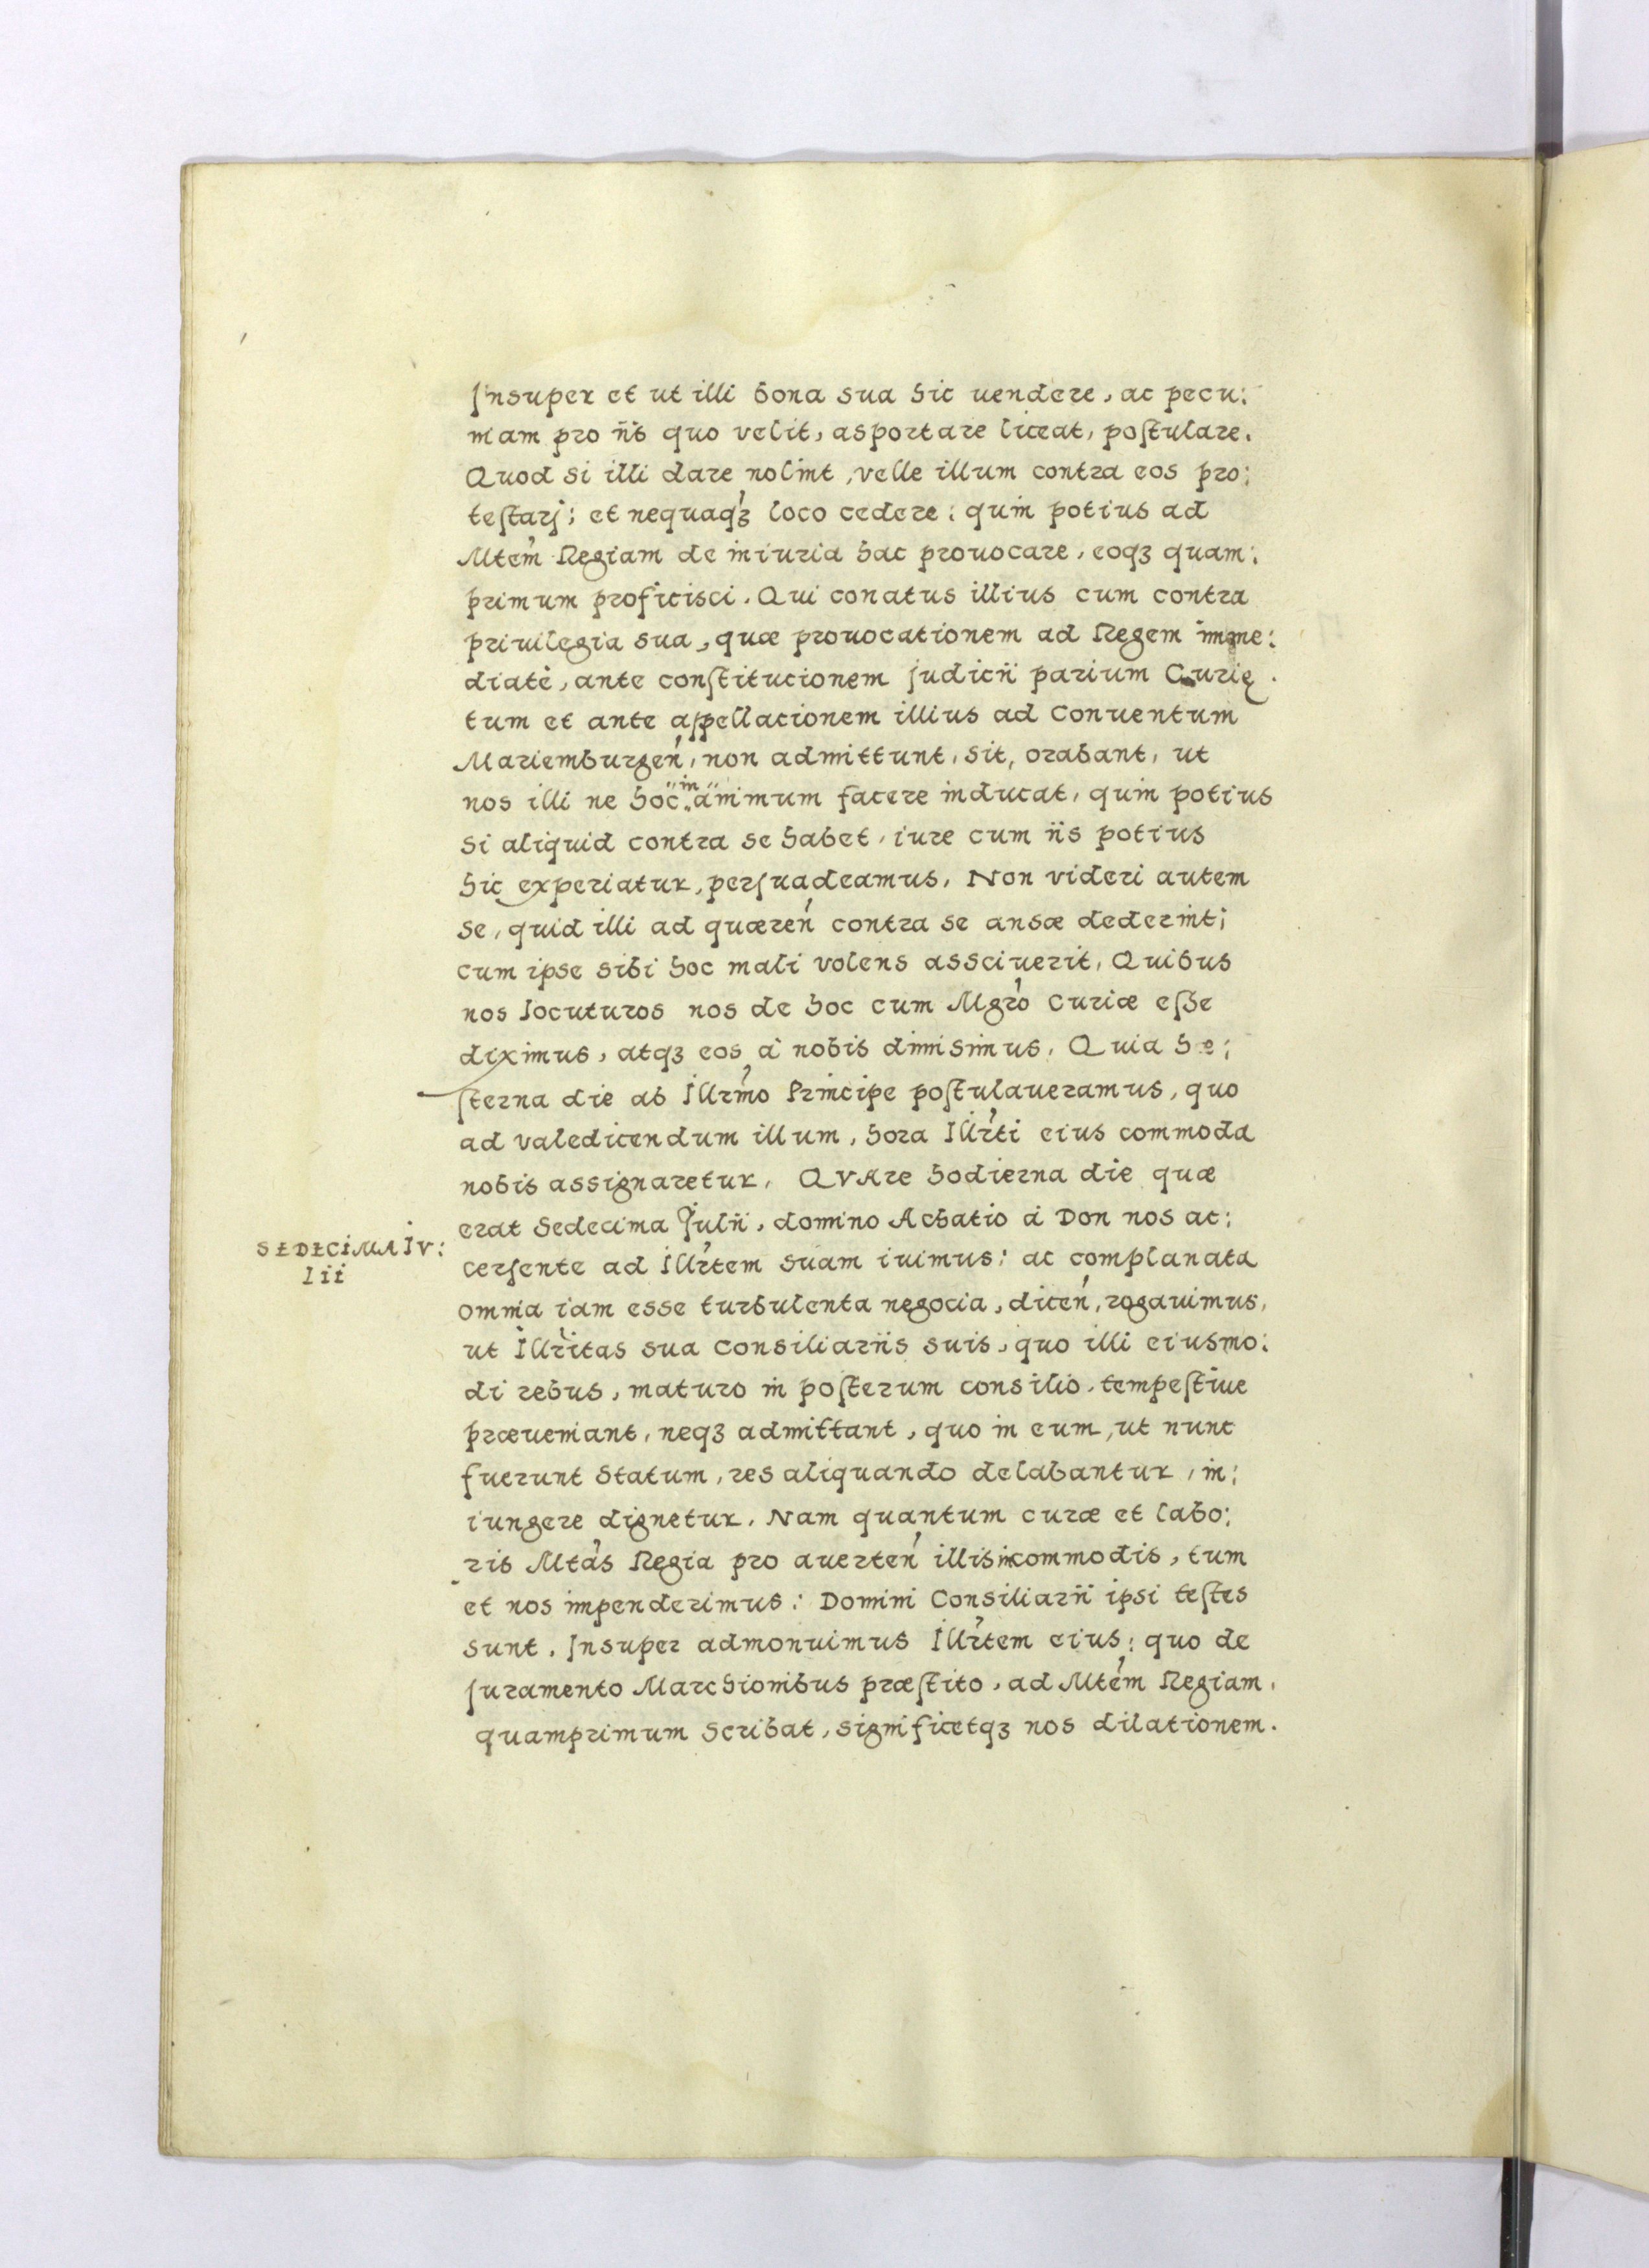 Insuper et ut illi bona sua hic uendere, ac pecu:
niam pro iis quo velit, asportare liceat, postulare.
Quod si illi dare nolint, velle illum contra eos pro:
testarj; et nequaqȝ loco cedere: quin potius ad
Mtem Regiam de iniuria hac prouocare, eoqȝ quam:
primum proficisci. Qui conatus illius cum contra
priuilegia sua, quæ prouocationem ad Regem imme:
diatè, ante constitucionem judicii parium Curię.
tum et ante appellacionem illius ad Conuentum
Mariemburgeń, non admittunt, sit, orabant, ut
nos illi ne hoc in animum facere inducat, quin potius
si aliquid contra se habet, iure cum iis potius
hic experiatur, persuadeamus. Non videri autem
se, quid illi ad quæreń contra se ansæ dederint;
cum ipse sibi hoc mali volens assciuerit. Quibus
nos locuturos nos de hoc cum Mgro Curiæ esse
diximus, atqȝ eos à nobis dimisimus. Quia he:
sterna die ab Illrmo Principe postulaueramus, quo
ad valedicendum illum, hora Illrti eius commoda
nobis assignaretur. QVAre hodierna die quæ
erat Sedecima Julii, domino Achatio à Don nos ac:
SEDECIMA IV:
lii
cersente ad Illrtem suam iuimus: ac complanata
omnia iam esse turbulenta negocia, diceń, rogauimus,
ut Illritas sua Consiliariis suis, quo illi eiusmo:
di rebus, maturo in posterum consilio, tempestiue
præueniant, neqȝ admittant, quo in eum, ut nunc
fuerunt statum, res aliquando delabantur, in:
iungere dignetur. Nam quantum curæ et labo:
ris Mtas Regia pro auerteń illis incommodis, tum
et nos impenderimus: Domini Consiliarii ipsi testes
sunt. Insuper admonuimus Illrtem eius: quo de
juramento Marchionibus præstito, ad Mtem Regiam,
quamprimum scribat, significetqȝ nos dilationem.